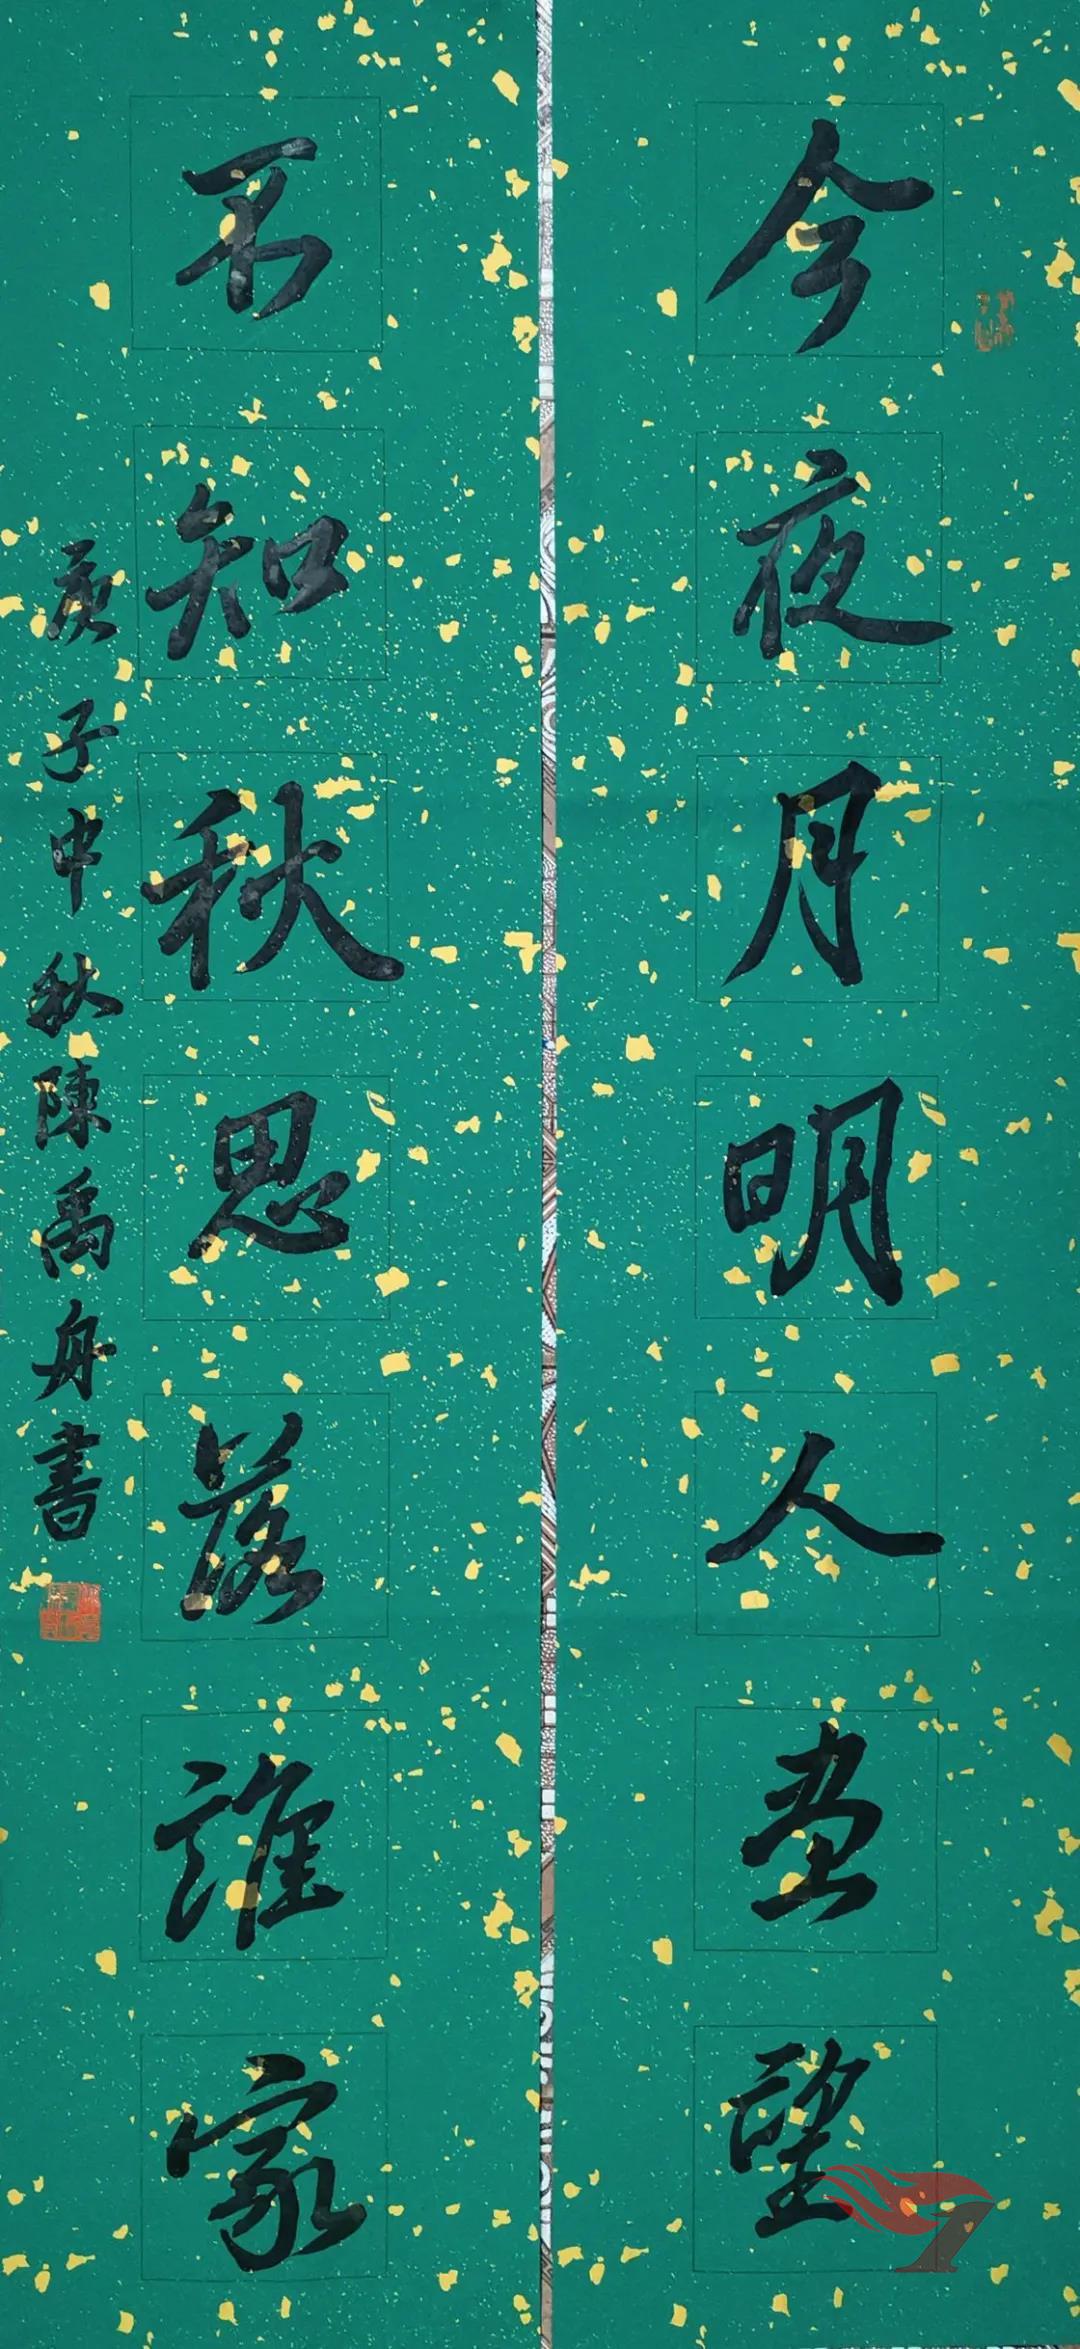 今夜月明人尽望
不知秋思落谁家
庚子中秋陳禹舟書